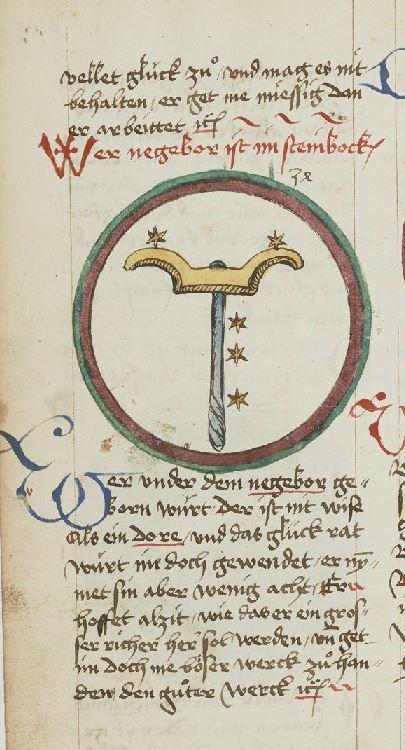 vellet glück zuͦ und mag es nit
behalten er get me miessig dan
er arbeittet
Wer negebor ist im steinbock
Wer under dem negebor ge-
born würt Der ist nit wise
Als ein Dore, und das glück rat
würt im doch gewendet er ny-
met sin aber wenig acht, Er
hoffet alzit wie das er ein gros-
ser richer her sol werden, un get
im doch me böser werck zuͦ han-
den, den guͦter werck